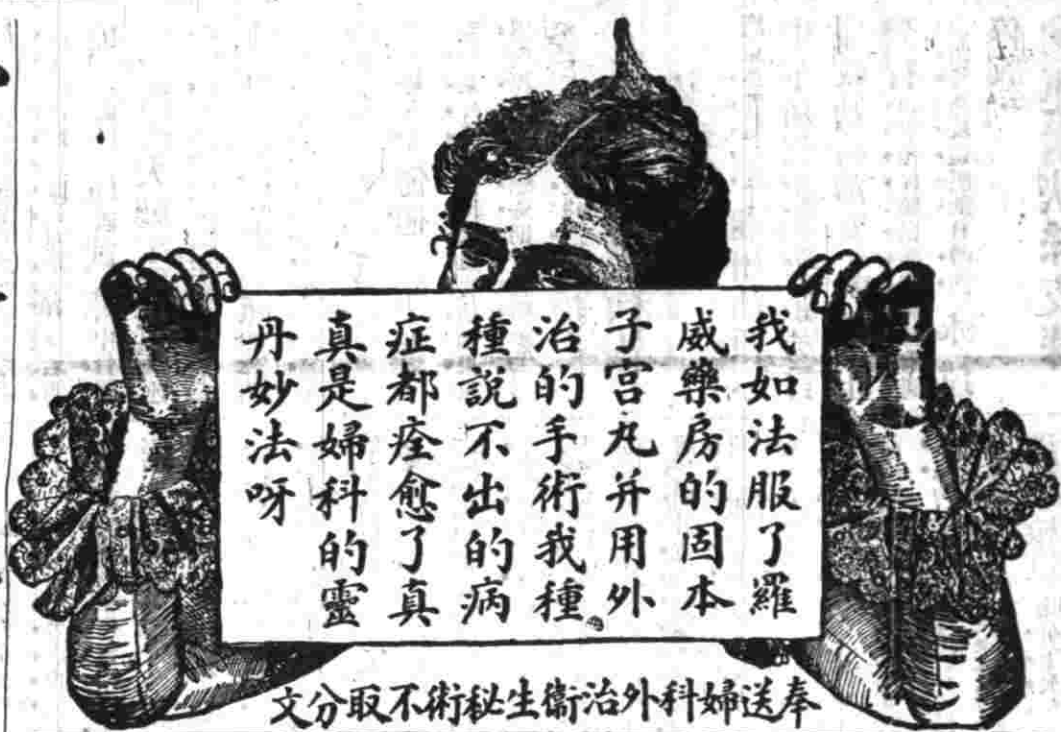 我如法服了羅
威藥房的固本
子宮丸并用外
治的手術我種
種説不出的病
症都痊愈了真
真是婦科的靈
丹妙法呀
奉送婦科外治衞生秘術不取分文